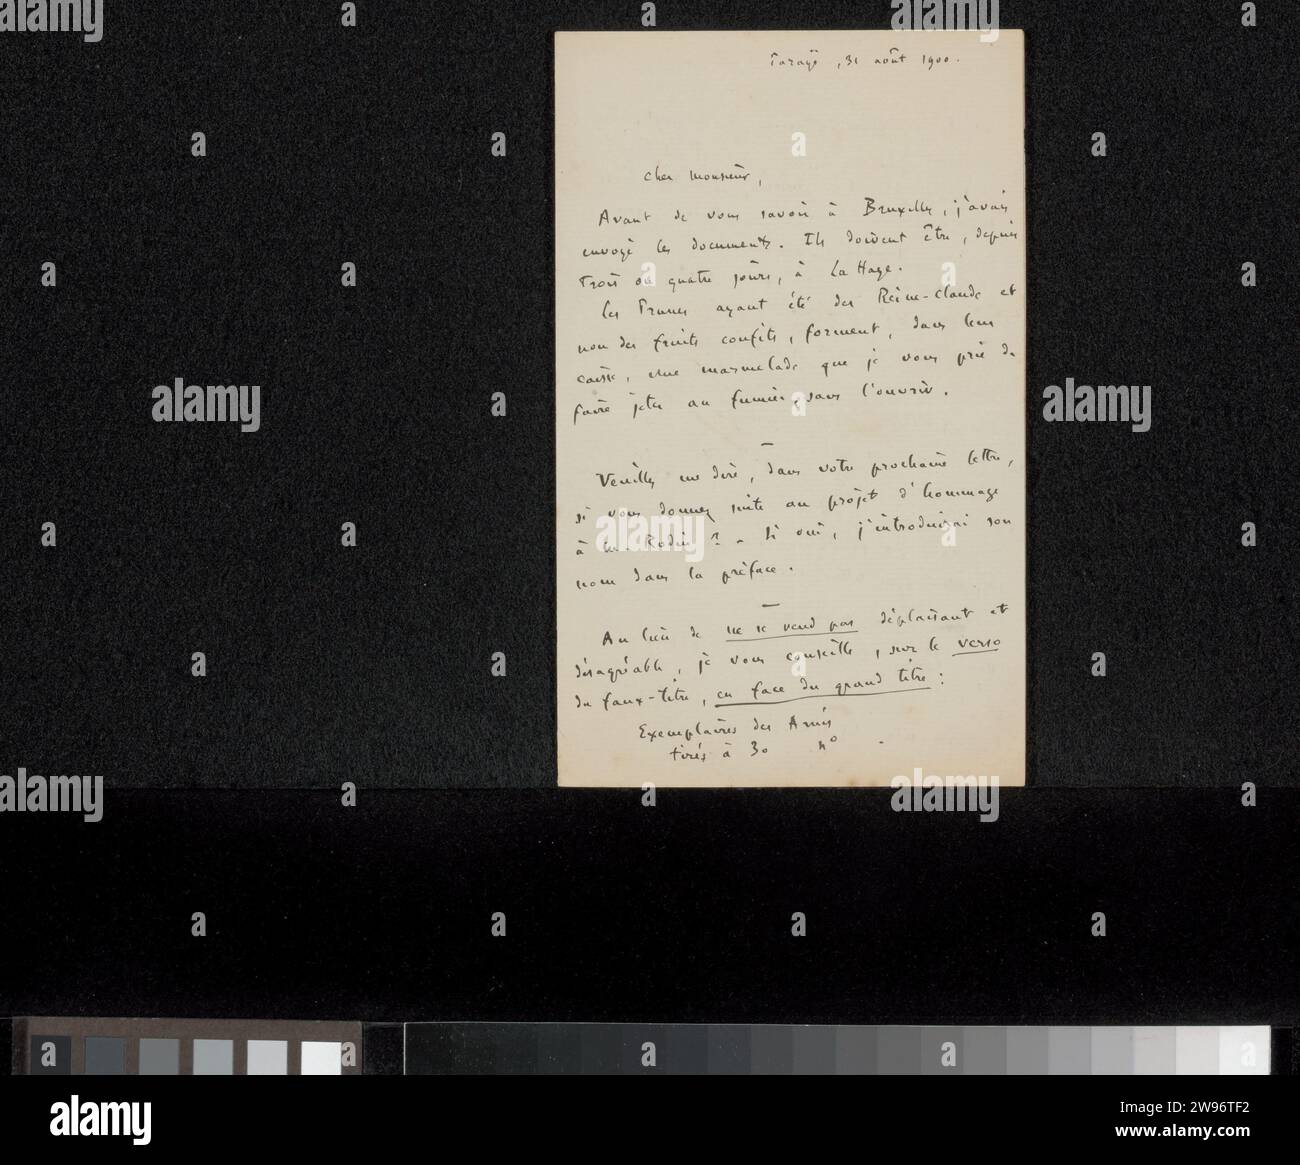 Farayë, 31 août 1900.
Cher Monsieur,
Avant de vous savoir à Bruxelles, j'avais
envoyé les documents. Ils doivent être, depuis
trois ou quatre jours, à La Haye.
Les Prunes ayant été des Reine-Claude et
non des fruits confits, forment, dans leur
caisse, une marmelade que je vous prie de
faire jeter au fumier, sans l'ouvrir.
Veuillez me dire, dans votre prochaine lettre,
si vous donnez suite au projet d'hommage
à M. Rodin ? - Si oui, j'introduirai son
nom dans la préface.
Au lieu de ne se vend pas déplaisant et
désagréable, je vous conseille, sur le verso
du faux-titre, en face du grand titre :
Exemplaires des Amis
tirés à 30 No .
alamy
Image ID: 2W96TF2
www.alamy.com